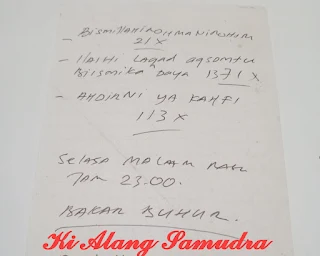 - BISMILLAHIROHMANIROHIM
21 X
- ILAIHI LAQAD AQSOMTU
BIISMIKA DAYA 1371 X
- AHDIRNI YA KAHFI
113 X
SELASA MALAM RABU
JAM 23.00.
BAKAR BUHUR.
Ki Alang Samudra